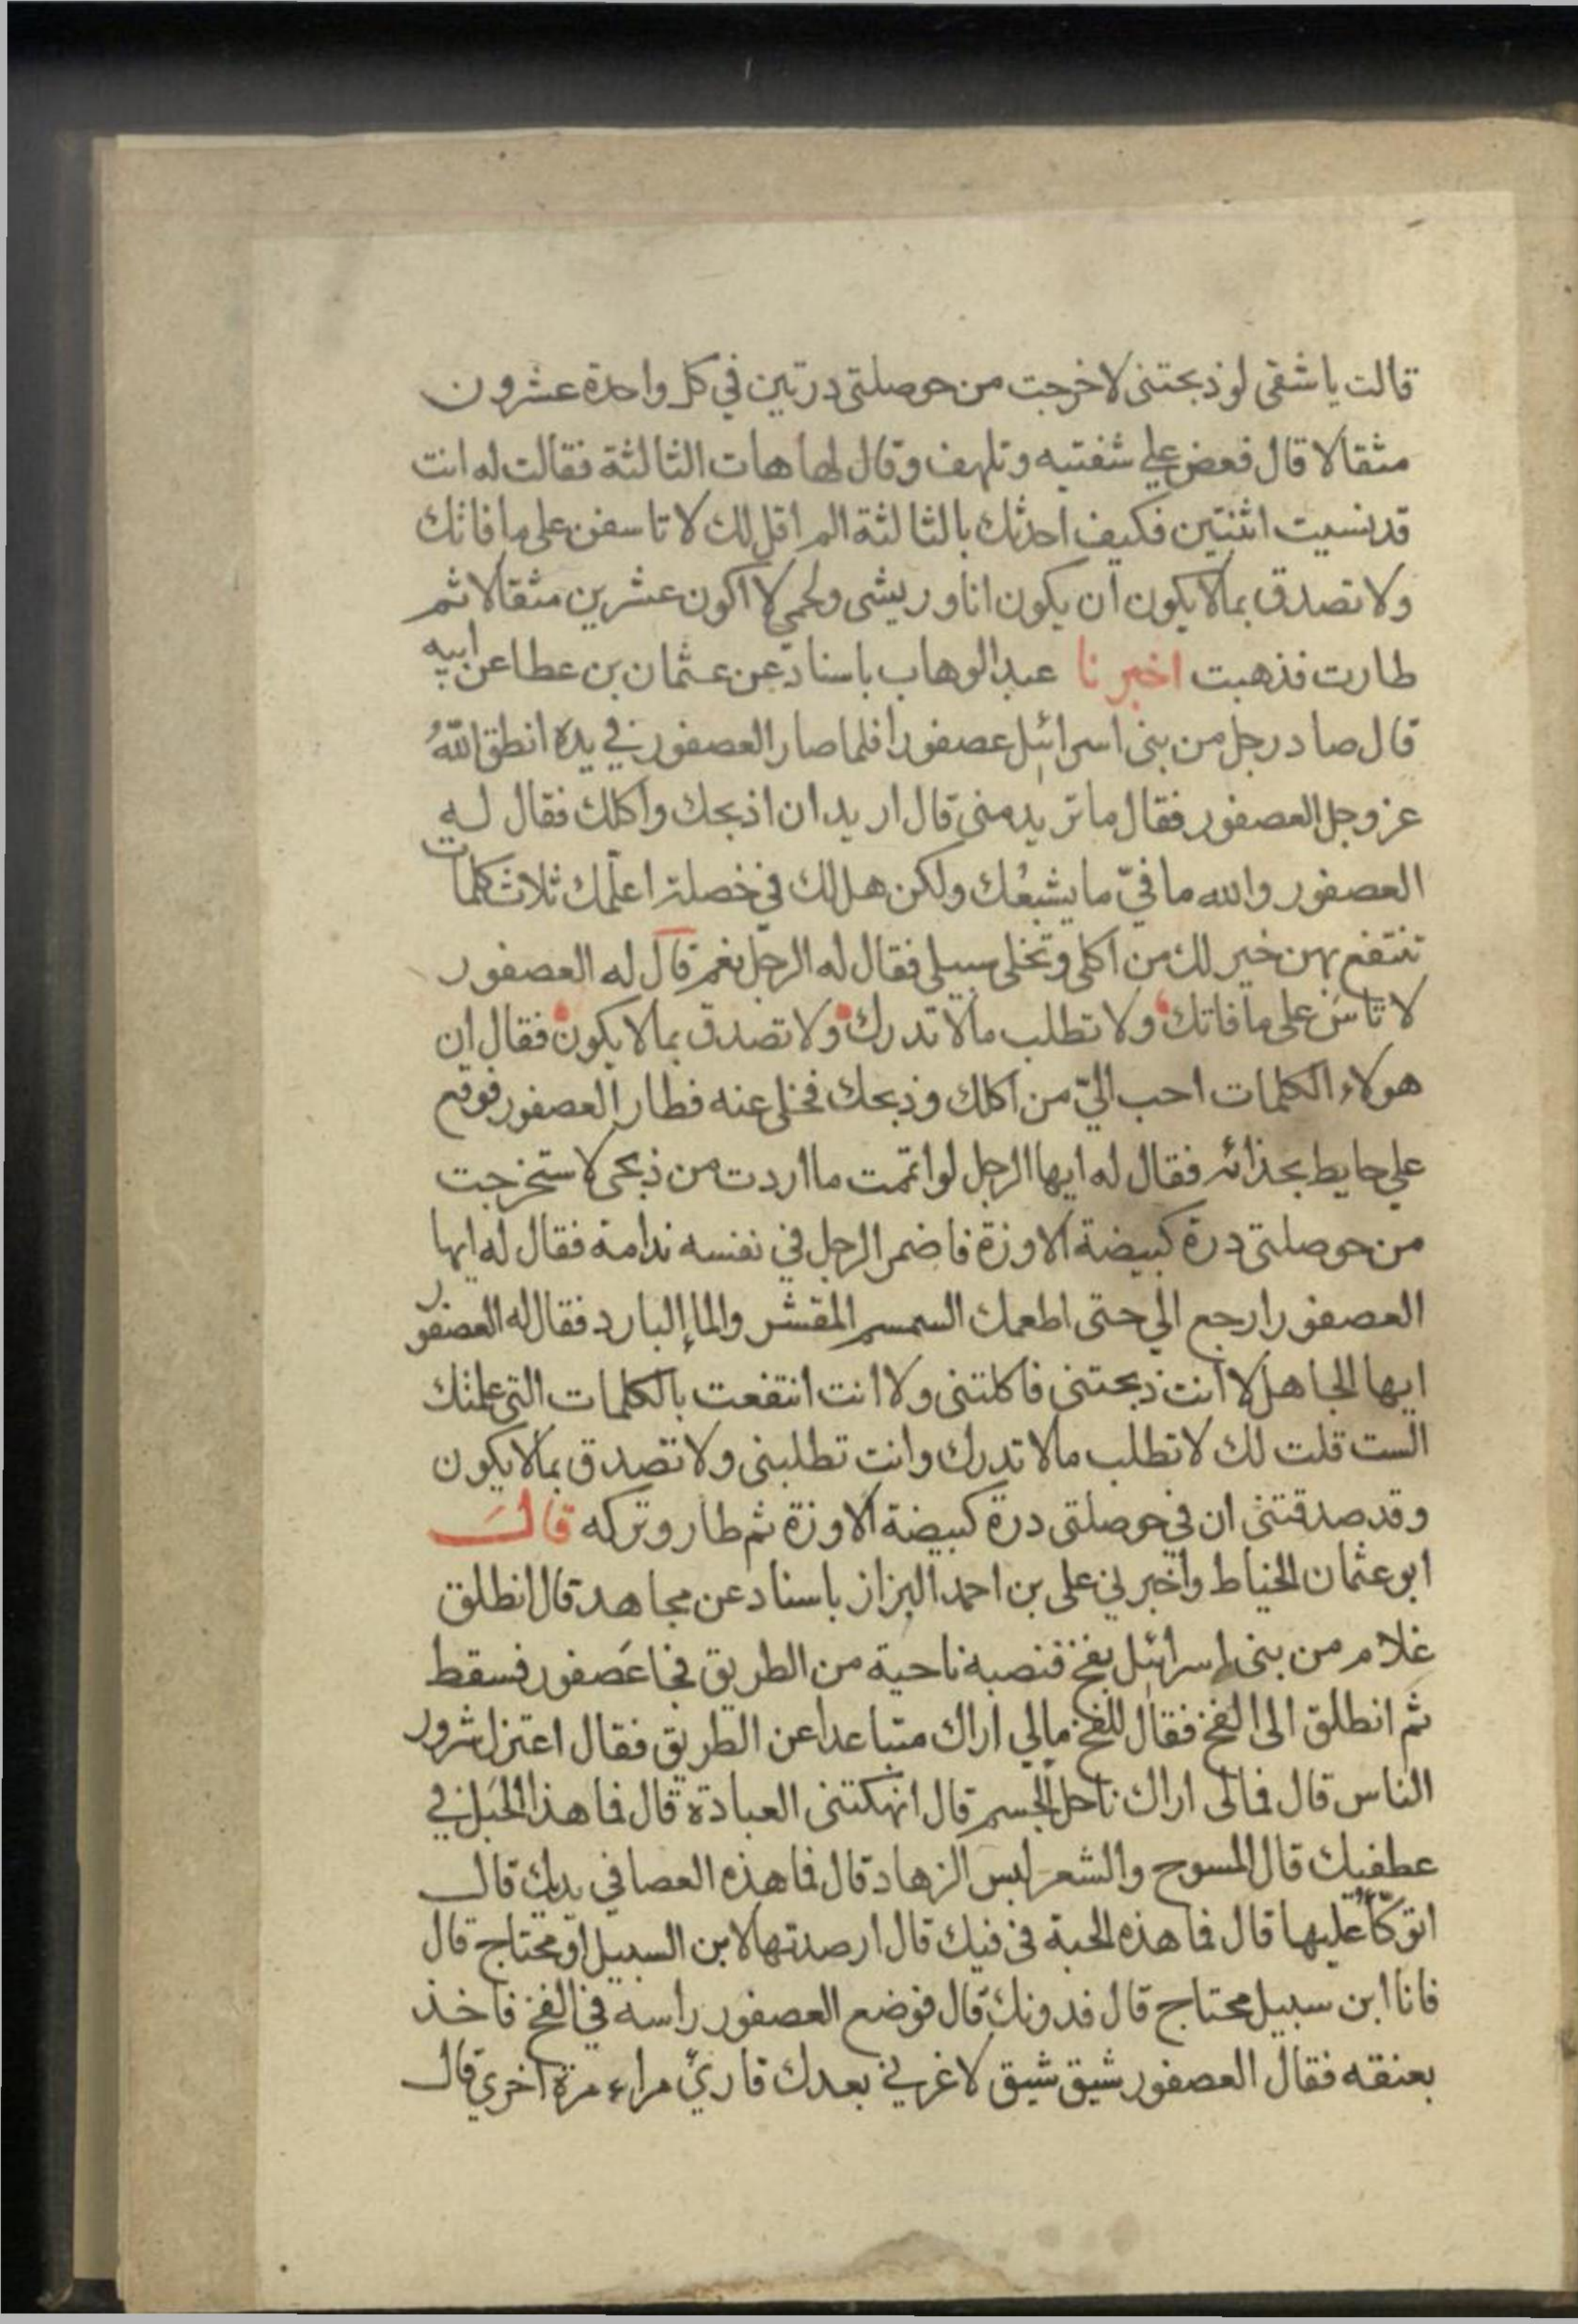 قالت يا شقى لو ذبحتنى لاخرجت من حوصلتى درتين في كل واحدة عشرون
مثقالا قال فعض علي شفتيه وتلهف وقال لها هات الثالثة فقالت له انت
قد نسيت اثنتين فكيف احدثك بالثالثة الم اقل لك لا تاسفن على ما فاتك
ولا تصدق بما لا يكون ان يكون انا وريشى ولحمي لا اكون عشرين مثقالا ثم
طارت فذهبت اخبرنا عبد الوهاب باسناد عن عثمان بن عطا عن ابيه
قال صاد رجل من بنى اسرائيل عصفورا فلما صار العصفور في يده انطق اللهُ
عز وجل العصفور فقال ما تريد منى قال اريد ان اذبحك واكلك فقال له
العصفور والله ما فيّ ما يشبعُك ولكن هل لك في خصلة اعلّمك ثلاث كلمات
تنتفع بهن خير لك من اكلى وتخلى سبيلى فقال له الرجل نعم قال له العصفور
لا تاسَ على ما فاتك ولا تطلب ما لا تدرك ولا تصدق بما لا يكون فقال ان
هولاء الكلمات احب اليّ من اكلك وذبحك فخلى عنه فطار العصفور فوقع
علي حايط بحذائه فقال له ايها الرجل لو اتممت ما اردت من ذبحى لاستخرجت
من حوصلتى درة كبيضة الاوزة فاضمر الرجل في نفسه ندامة فقال له ايها
العصفور ارجع الي حتى اطعمك السمسم المقشر والماء البارد فقال له العصفور
ايها الجاهل لا انت ذبحتنى فاكلتنى ولا انت انتفعت بالكلمات التى علمتك
الست قلت لك لا تطلب ما لا تدرك وانت تطلبنى ولا تصدق بما لا يكون
وقد صدقتنى ان في حوصلتى درة كبيضة الاوزة ثم طار وتركه قالَ
ابو عثمان الخياط واخبرني على بن احمد البزاز باسناد عن مجاهد قال انطلق
غلام من بنى اسرائيل بفخ فنصبه ناحية من الطريق فجا عَصفور فسقط
ثم انطلق الى الفخ فقال للفخ مالي اراك متباعدا عن الطريق فقال اعتزل شرور
الناس قال فمالى اراك ناحل الجسم قال انهكتنى العبادة قال فما هذا الحَبل في
عطفيك قال المسوح والشعر لبس الزهاد قال فما هذه العصا في يديك قال
اتوكّأُ عليها قال فما هذه الحبة في فيك قال ارصدتها لابن السبيل او محتاج قال
فانا ابن سبيل محتاج قال فدونك قال فوضع العصفور راسه في الفخ فاخذ
بعنقه فقال العصفور شيق شيق لا غرني بعدك قاريٌ مراء مرة اخري قال